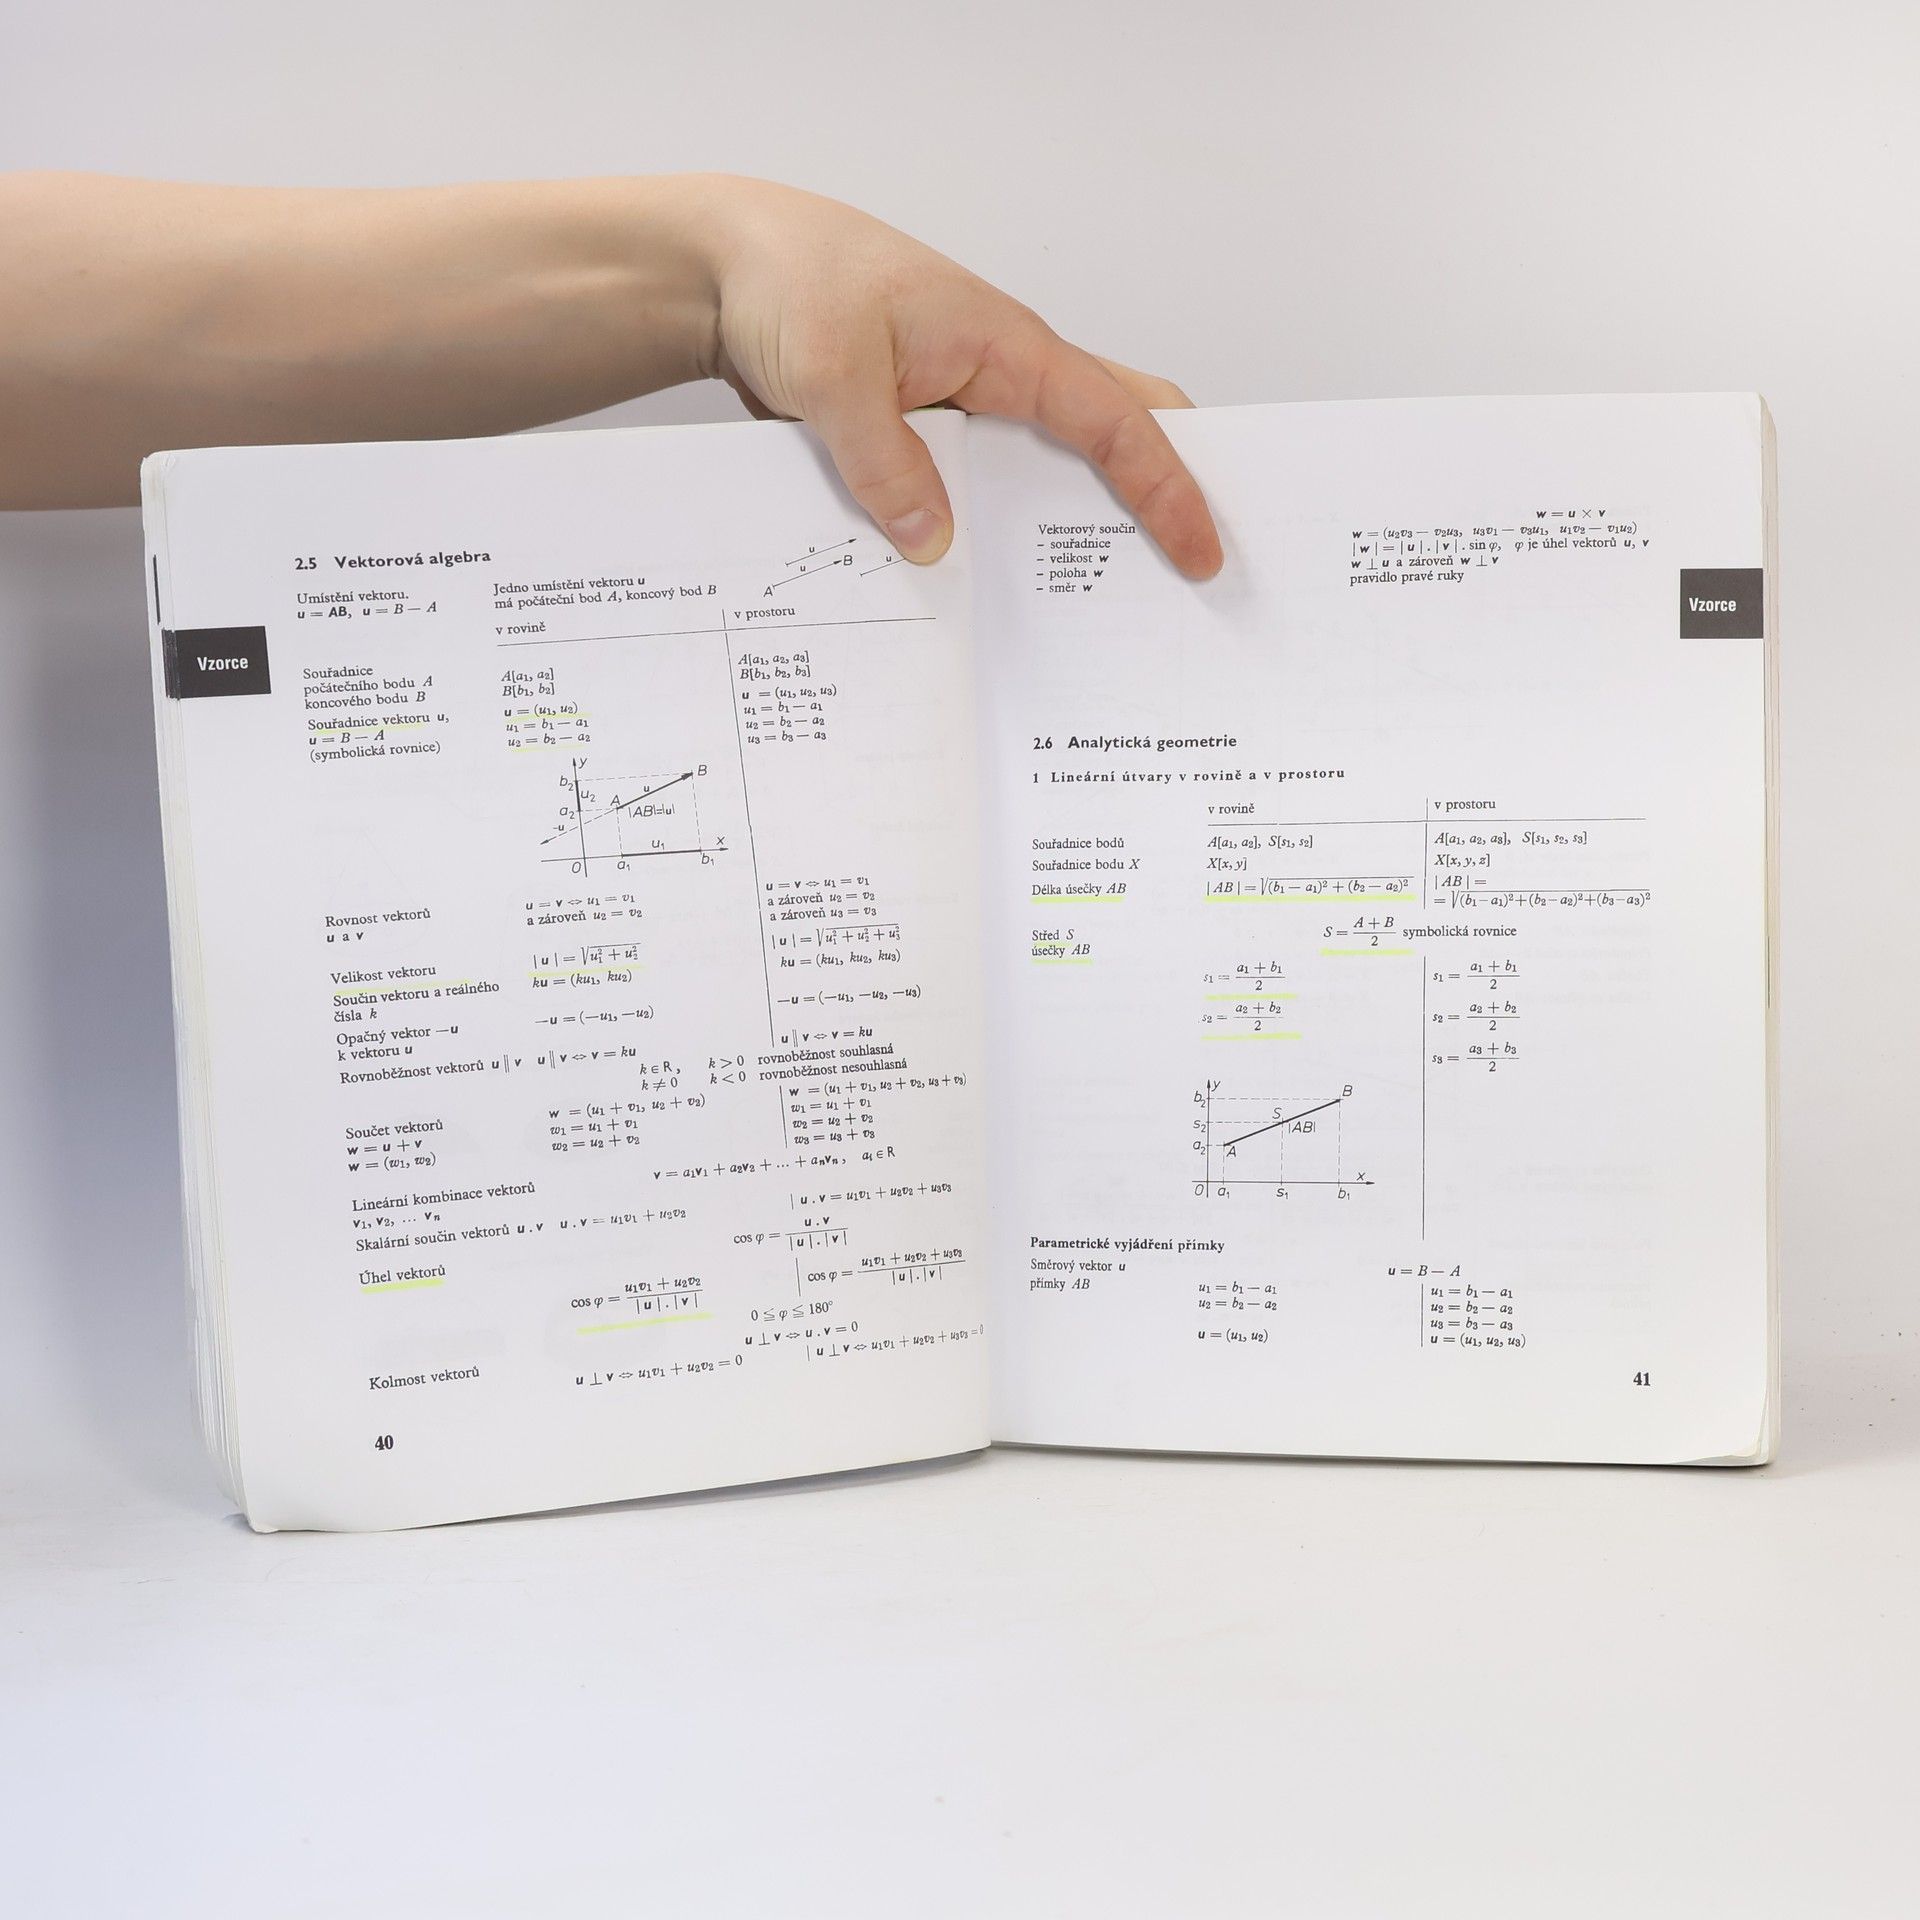 2.5 Vektorová algebra
Umístění vektoru.
u = AB, u = B — A
Jedno umístění vektoru u
má počáteční bod A, koncový bod B
u
u
A
B
u
v rovině
v prostoru
Vzorce
Souřadnice
počátečního bodu A
koncového bodu B
A[a₁, a₂]
B[b₁, b₂]
A[a₁, a₂, a₃]
B[b₁, b₂, b₃]
Souřadnice vektoru u,
u = B — A
(symbolická rovnice)
u = (u₁, u₂)
u₁ = b₁ — a₁
u₂ = b₂ — a₂
u = (u₁, u₂, u₃)
u₁ = b₁ — a₁
u₂ = b₂ — a₂
u₃ = b₃ — a₃
y
b₂
u₂
a₂
-u
A
u
B
|AB|=|u|
u₁
x
0
a₁
b₁
Rovnost vektorů
u a v
u = v ⇔ u₁ = v₁
a zároveň u₂ = v₂
u = v ⇔ u₁ = v₁
a zároveň u₂ = v₂
a zároveň u₃ = v₃
Velikost vektoru
|u| = √(u₁² + u₂²)
|u| = √(u₁² + u₂² + u₃²)
Součin vektoru a reálného
čísla k
ku = (ku₁, ku₂)
ku = (ku₁, ku₂, ku₃)
Opačný vektor —u
k vektoru u
—u = (—u₁, —u₂)
—u = (—u₁, —u₂, —u₃)
Rovnoběžnost vektorů u ∥ v u ∥ v ⇔ v = ku
u ∥ v ⇔ v = ku
k ∈ R, k > 0 rovnoběžnost souhlasná
k ≠ 0 k < 0 rovnoběžnost nesouhlasná
Součet vektorů
w = u + v
w = (w₁, w₂)
w = (u₁ + v₁, u₂ + v₂)
w₁ = u₁ + v₁
w₂ = u₂ + v₂
w = (u₁ + v₁, u₂ + v₂, u₃ + v₃)
w₁ = u₁ + v₁
w₂ = u₂ + v₂
w₃ = u₃ + v₃
Lineární kombinace vektorů
v₁, v₂, ... vₙ
v = a₁v₁ + a₂v₂ + ... + aₙvₙ, aᵢ ∈ R
Skalární součin vektorů u . v u . v = u₁v₁ + u₂v₂
u . v = u₁v₁ + u₂v₂ + u₃v₃
Úhel vektorů
cos φ = u . v / |u| . |v|
cos φ = u₁v₁ + u₂v₂ / |u| . |v|
cos φ = u₁v₁ + u₂v₂ + u₃v₃ / |u| . |v|
0 ≦ φ ≦ 180°
Kolmost vektorů
u ⊥ v ⇔ u . v = 0
u ⊥ v ⇔ u₁v₁ + u₂v₂ = 0
u ⊥ v ⇔ u₁v₁ + u₂v₂ + u₃v₃ = 0
40
Vektorový součin
– souřadnice
– velikost w
– poloha w
– směr w
w = u × v
w = (u₂v₃ — v₂u₃, u₃v₁ — v₃u₁, u₁v₂ — v₁u₂)
|w| = |u| . |v| . sin φ, φ je úhel vektorů u, v
w ⊥ u a zároveň w ⊥ v
pravidlo pravé ruky
Vzorce
2.6 Analytická geometrie
1 Lineární útvary v rovině a v prostoru
v rovině
v prostoru
Souřadnice bodů
A[a₁, a₂], S[s₁, s₂]
A[a₁, a₂, a₃], S[s₁, s₂, s₃]
Souřadnice bodu X
X[x, y]
X[x, y, z]
Délka úsečky AB
|AB| = √((b₁ — a₁)² + (b₂ — a₂)²)
|AB| =
= √((b₁—a₁)²+(b₂—a₂)²+(b₃—a₃)²)
Střed S
úsečky AB
S = A + B / 2 symbolická rovnice
s₁ = a₁ + b₁ / 2
s₂ = a₂ + b₂ / 2
s₁ = a₁ + b₁ / 2
s₂ = a₂ + b₂ / 2
s₃ = a₃ + b₃ / 2
y
b₂
s₂
a₂
A
S
B
|AB|
x
0
a₁
s₁
b₁
Parametrické vyjádření přímky
Směrový vektor u
přímky AB
u = B — A
u₁ = b₁ — a₁
u₂ = b₂ — a₂
u = (u₁, u₂)
u₁ = b₁ — a₁
u₂ = b₂ — a₂
u₃ = b₃ — a₃
u = (u₁, u₂, u₃)
41